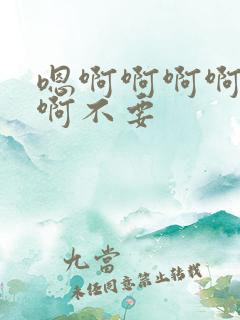 嗯啊啊啊啊
啊不要
九當
未经同意禁止转载